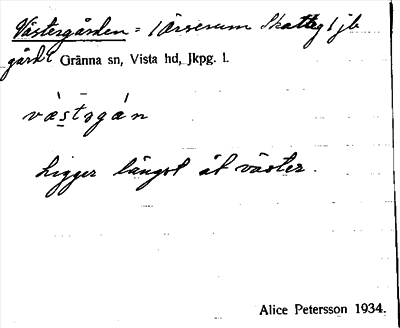 Västergården = i Örserum Skatteg 1 jb
gård i Gränna sn, Vista hd, Jkpg. l.
væstəgán
Ligger längst åt väster.
Alice Petersson 1934.